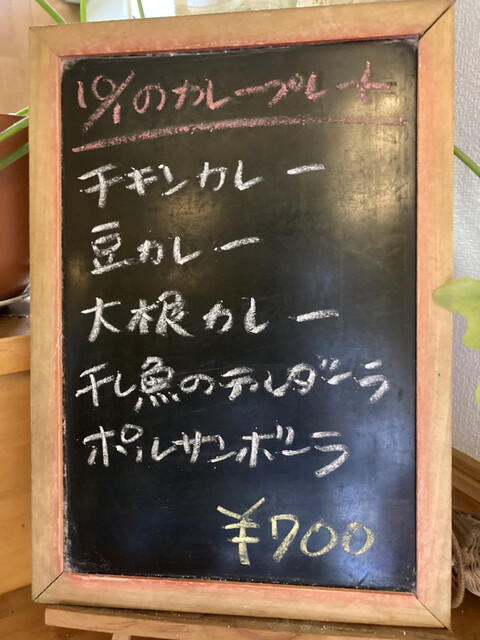 10/1のカレープレート
チキンカレー
豆カレー
大根カレー
干し魚のテルダーラ
ポルサンボーラ
¥700